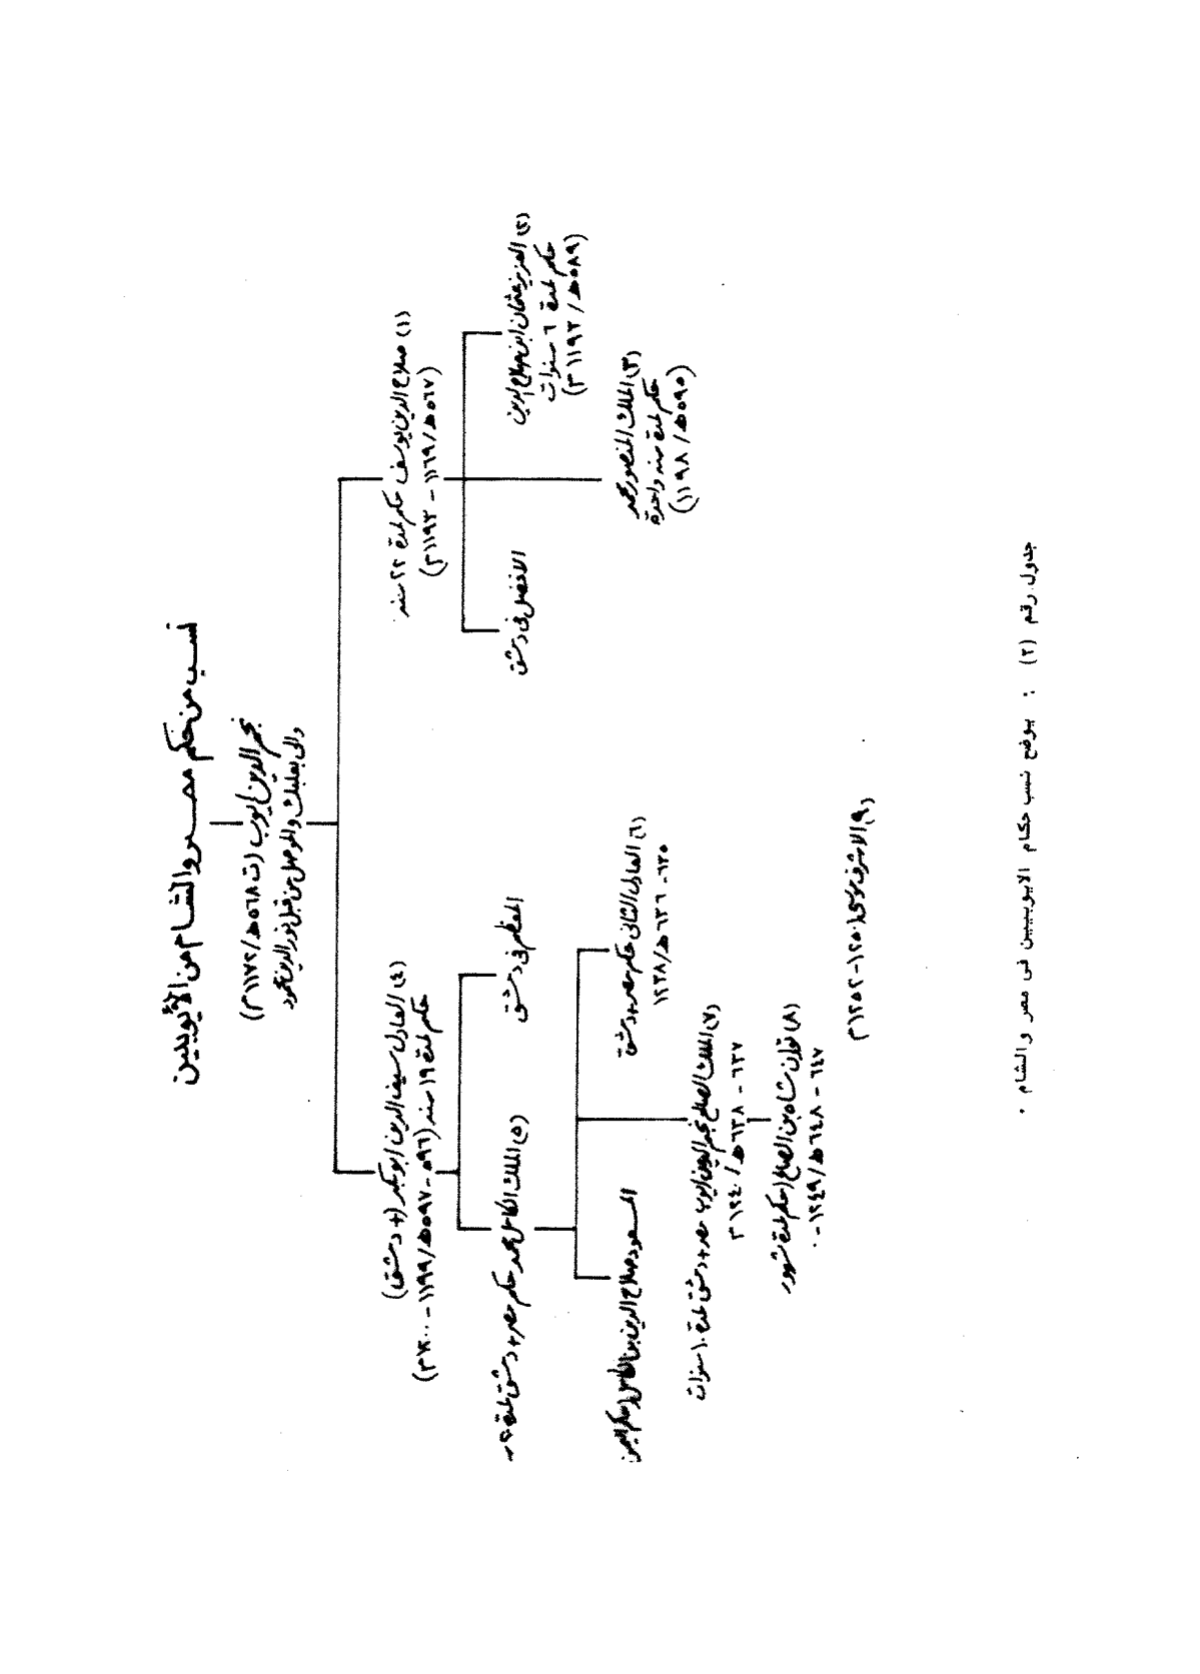 نسب من حكم مصر والشام من الأيوبيين
نجم الدين أيوب (ت ٥٦٨هـ/١١٧٢م)
والى بعلبك والموصل من قبل نور الدين محمود
(١) صلاح الدين يوسف حكم لمدة ٢٢ سنه
(٥٦٧هـ/١١٦٩ - ١١٩٣م)
(٢) العزيز عثمان ابن صلاح الدين
حكم لمدة ٦ سنوات
(٥٨٩هـ/١١٩٣م)
(٣) الملك المنصور محمد
حكم لمدة سنه واحدة
(٥٩٥هـ/١١٩٨)
الافضل فى دمشق
(٤) العادل سيف الدين ابو بكر (+ دمشق)
حكم لمدة ١٩ سنه (٥٩٦ - ٥٩٧هـ/١١٩٩ - ١٢٠٠م)
المعظم فى دمشق
(٥) الملك الكامل محمد حكم مصر + دمشق لمدة
(٦) العادل الثانى حكم مصر + دمشق
٦٣٥ - ٦٣٦هـ/١٢٣٨
(٧) الملك الصالح نجم الدين ايوب مصر + دمشق لمدة ١٠ سنوات
٦٣٧ - ٦٣٨هـ/١٢٤٠م
المسعود صلاح الدين بن الكامل (حكم اليمن
(٨) توران شاه بن الصالح (حكم لمدة شهور
٦٤٧ - ٦٤٨هـ/١٢٤٩ - ٠
(٩) الاشرف موسى ١٢٥٠ - ١٢٥٢م
جدول رقم (٢) : يوضح نسب حكام الايوبيين فى مصر والشام ٠